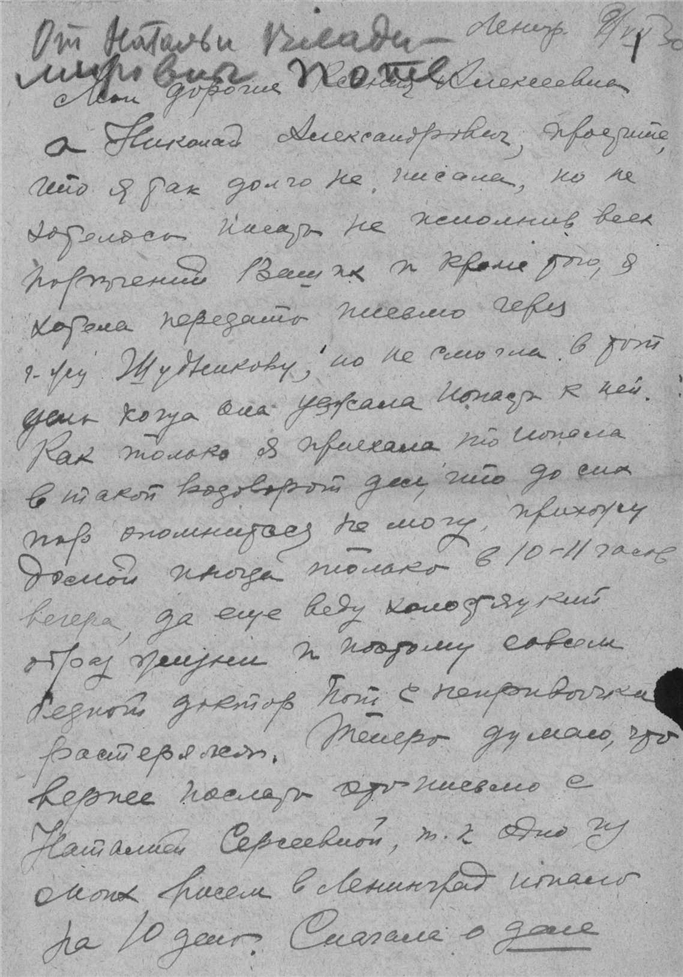 От Натальи Влади-
мировны Потт
Ленингр. 9/VI 30
Мои дорогие Ксения Алексеевна
и Николай Александрович, простите,
что я так долго не писала, но не
хотелось писать не исполнив всех
поручений Ваших и кроме того, я
хотела передать письмо через
г-жу Шудникову, но не смогла в тот
день когда она уезжала попасть к ней.
Как только я приехала то попала
в такой водоворот дел, что до сих
пор опомниться не могу, прихожу
домой иногда только в 10-11 часов
вечера, да еще веду холостяцкий
образ жизни и поэтому совсем
бедной доктор Пот с непривычки
растерялся. Теперь думаю, что
вернее послать это письмо с
Наталией Сергеевной, т.к одно из
моих писем в Ленинград попало
на 10 день. Сначала о деле